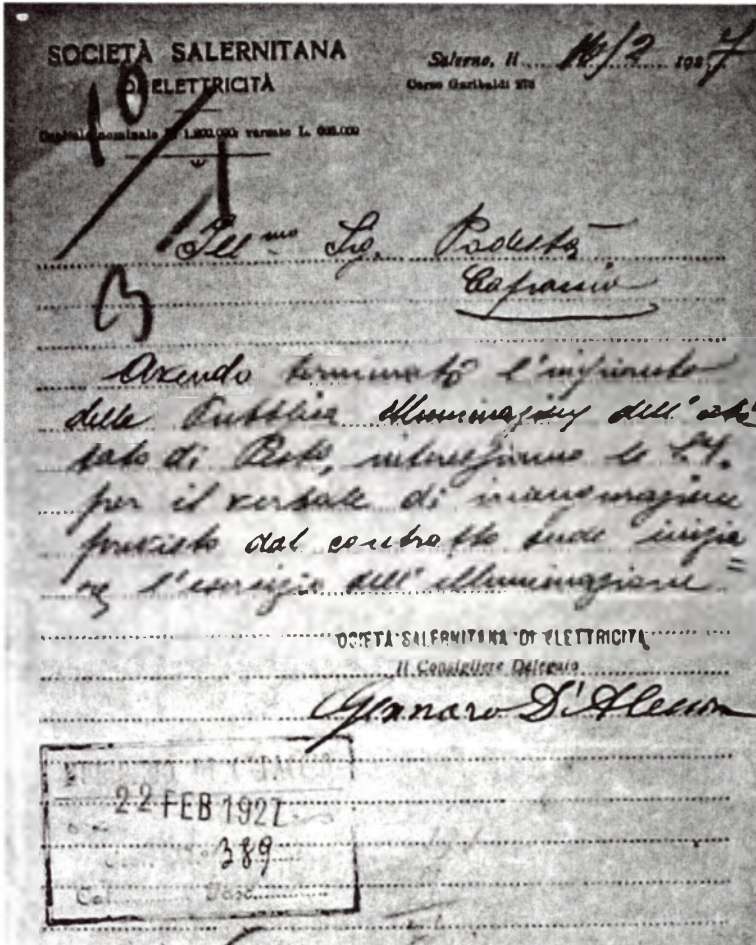 SOCIETÀ SALERNITANA
DI ELETTRICITÀ
Capitale nominale L. 1.200.000; versato L.
Salerno, li 16/2 1927
Corso Garibaldi
10
Ill.mo Sig. Podestà
Capaccio
Avendo terminato l'impianto
della Pubblica Illuminazione dell'abi
tato di interessiamo la S.V.
per il verbale di inaugurazione
previsto dal contratto onde inizia
re l'esercizio dell'illuminazione =
OCIETÀ SALERNITANA DI ELETTRICITÀ
Il Consigliere Delegato
Gennaro D'Alessio
22 FEB 1927
389